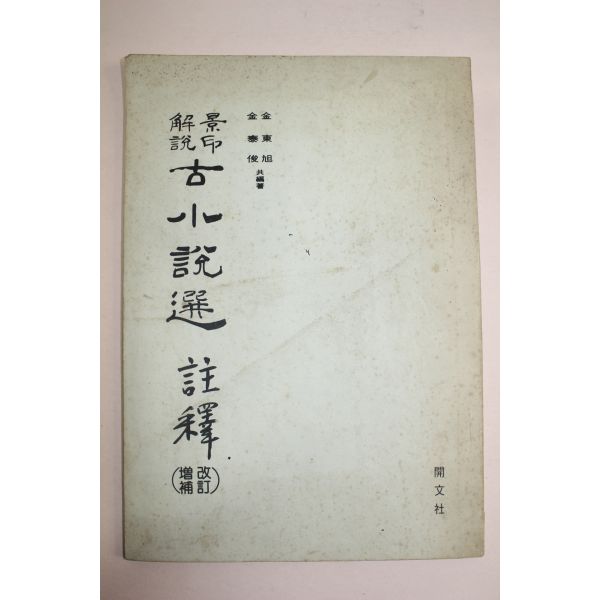 金東旭
金泰俊 共編著
景印
解說
古小說選 註釋
改訂
增補
開文社